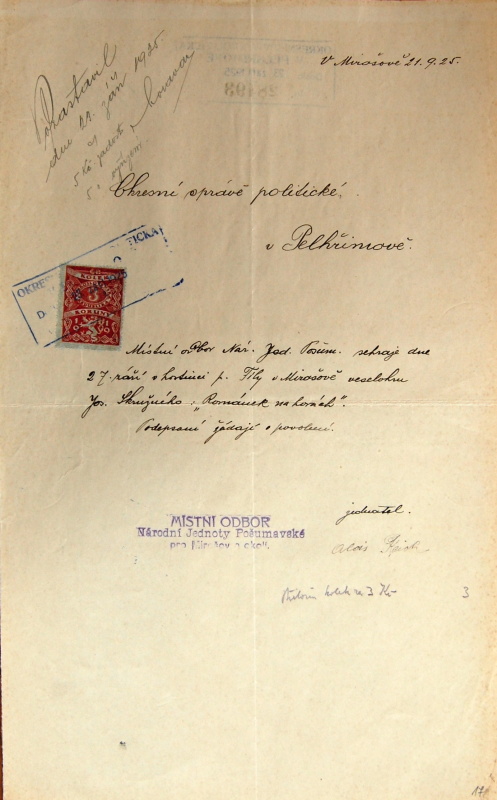 V Mirošově 21.9.25.
dne 23. září 1925
5 Kč
Okresní správě politické
v Pelhřimově.
KOLEK
KORUNY
Místní odbor Nár. Jed. Pošum. sehraje dne
27. září v hostinci p. Fily v Mirošově veselohru
Jos. Skružného: "Románek na horách".
Podepsaní žádají o povolení.
jednatel.
MÍSTNÍ ODBOR
Národní Jednoty Pošumavské
pro Mirošov a okolí.
Alois
kolek na 3 Kč
3
17